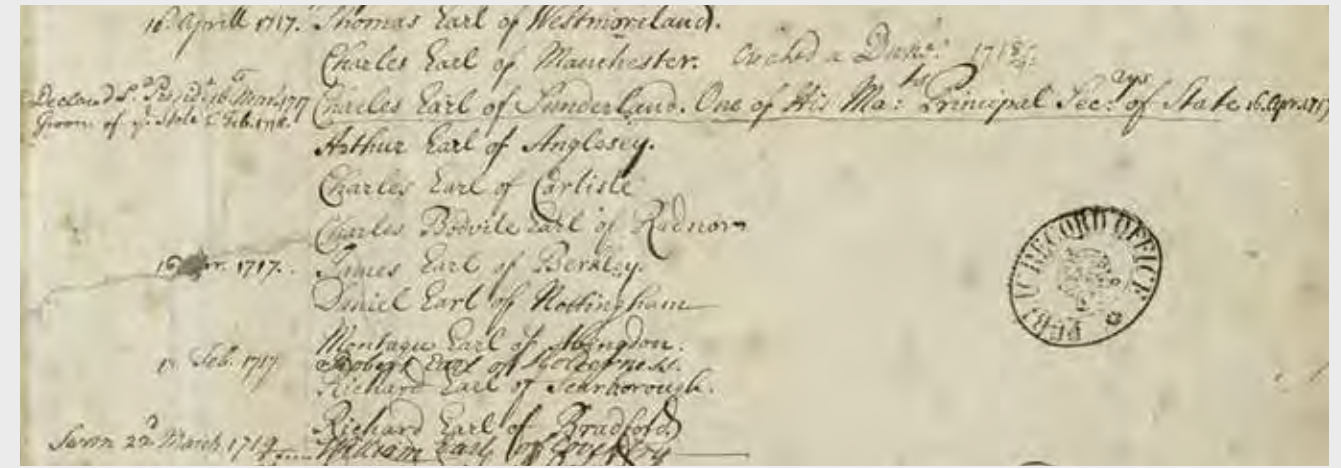 16 Aprill 1717. Thomas Earl of Westmoreland.
Charles Earl of Manchester. Created a Duke 1718/9
Declared Ld. Presidt. 16 March 1717 Charles Earl of Sunderland. One of His Mats: Principal Secrays of State 16. Apr. 1717
Groom of ye. Stole 6 Feb. 1718.
Arthur Earl of Anglesey.
Charles Earl of Carlisle
Charles Bodvile Earl of Radnor
16 Apr. 1717. James Earl of Berkley.
Daniel Earl of Nottingham
Montagu Earl of Abingdon.
Feb. 1717 Robert Earl of Holderness.
Richard Earl of Scarborough.
Richard Earl of Bradford
Sworn 22d March 1719 William Earl of Coventry
PUBLIC RECORD OFFICE